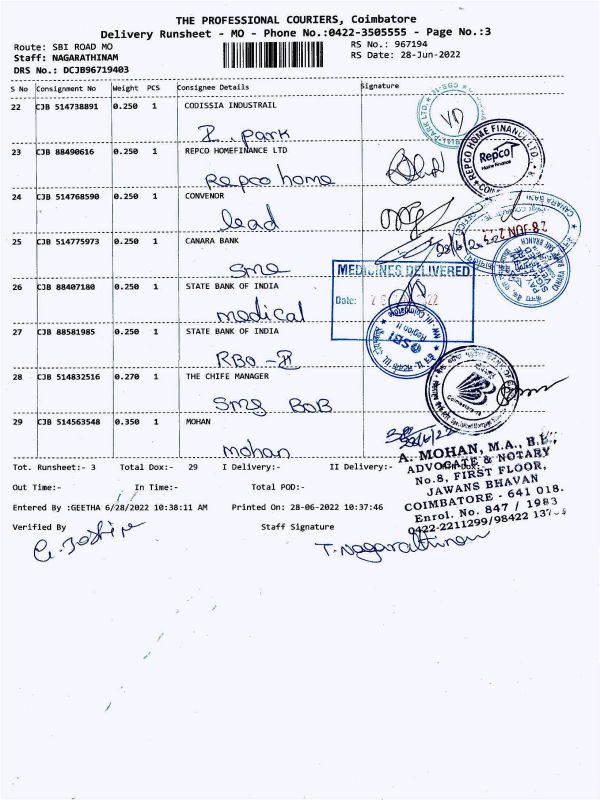 THE PROFESSIONAL COURIERS, Coimbatore
Delivery Runsheet - MO - Phone No.:0422-3505555 - Page No.:3
Route: SBI ROAD MO
RS No.: 967194
Staff: NAGARATHINAM
RS Date: 28-Jun-2022
DRS No.: DCJB96719403
S No Consignment No Weight PCS Consignee Details Signature
22 CJB 514738891 0.250 1 CODISSIA INDUSTRAIL
I. park
VD
23 CJB 88490616 0.250 1 REPCO HOMEFINANCE LTD
Repco home
REPCO HOME FINANCE LTD.
Repco
Home Finance
24 CJB 514768590 0.250 1 CONVENOR
lead
CANARA BANK
28 JUN 2
25 CJB 514775973 0.250 1 CANARA BANK
sme
MEDICINES DELIVERED
26 CJB 88407180 0.250 1 STATE BANK OF INDIA
Date:
medical
27 CJB 88581985 0.250 1 STATE BANK OF INDIA
RBO - II
SBI
Region II
28 CJB 514832516 0.270 1 THE CHIFE MANAGER
Smg BOB
29 CJB 514563548 0.350 1 MOHAN
mohan
A. MOHAN, M.A., B.L.,
ADVOCATE & NOTARY
No.8, FIRST FLOOR,
JAWANS BHAVAN
COIMBATORE - 641 018.
Enrol. No. 847 / 1983
0422-2211299/98422
Tot. Runsheet:- 3 Total Dox:- 29 I Delivery:- II Delivery:-
Out Time:- In Time:- Total POD:-
Entered By :GEETHA 6/28/2022 10:38:11 AM Printed On: 28-06-2022 10:37:46
Verified By Staff Signature
T. Nagarathinam